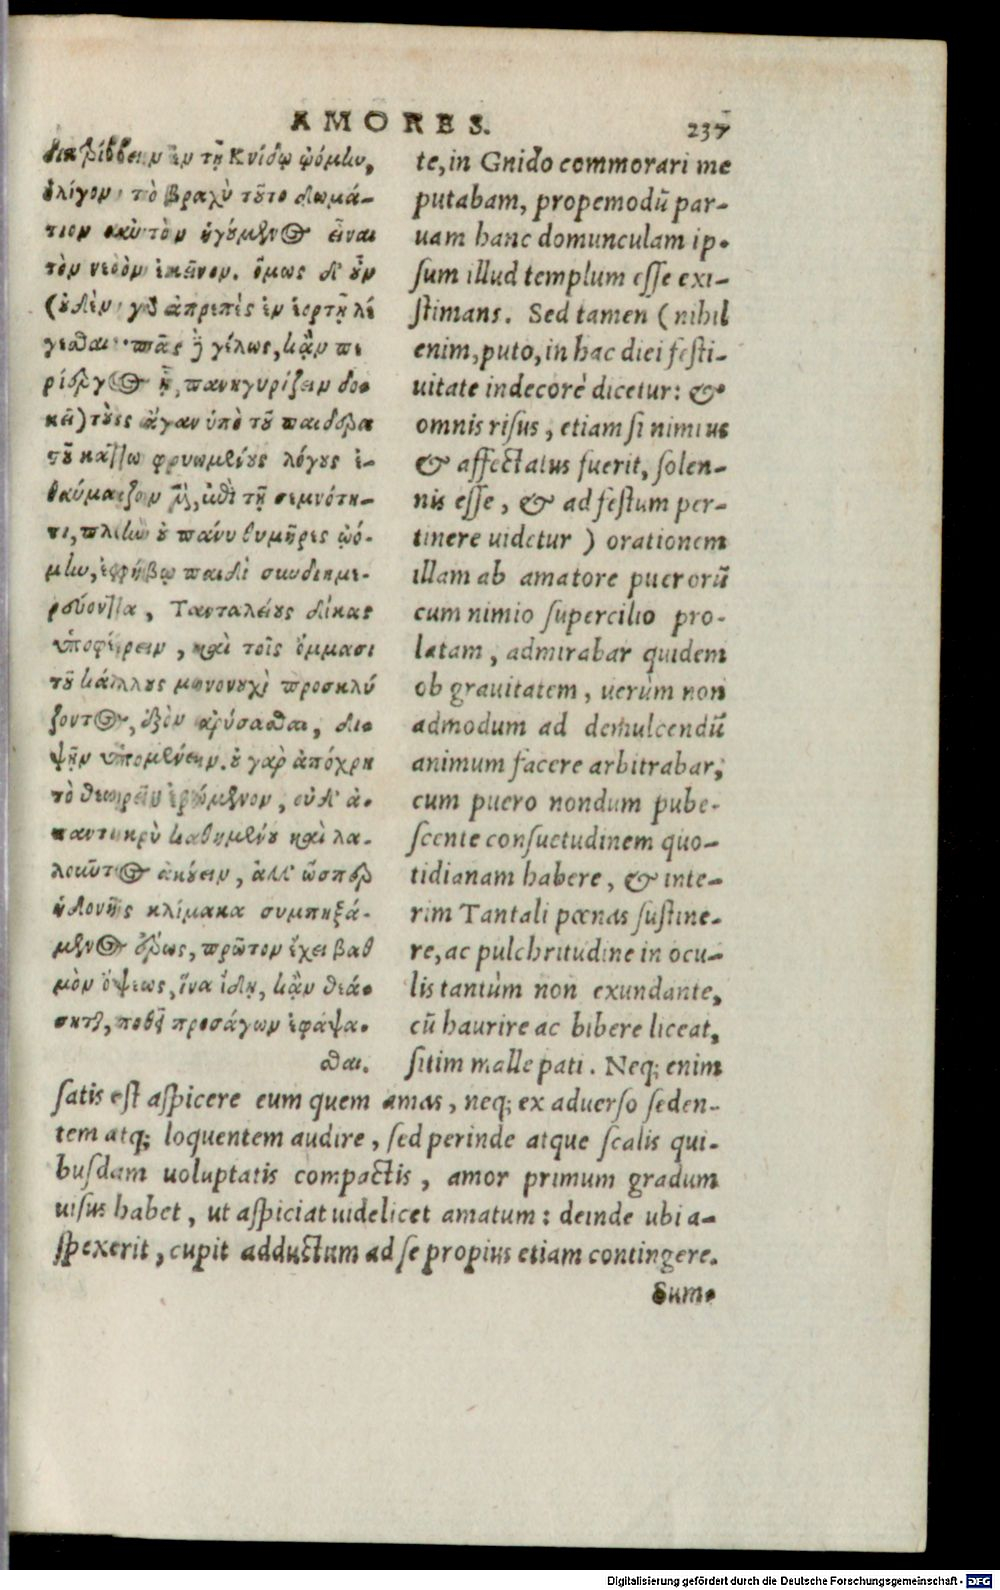 AMORES. 237
διατρίβειν ἐν τῇ Κνίδῳ ᾠόμην,
ὀλίγον τὸ βραχὺ τοῦτο δωμά-
τιον αὐτὸν ἡγούμενος εἶναι
τὸν νεὼν ἐκεῖνον. ὅμως δ' οὖν
(οὐδὲν γὰρ ἀπρεπὲς ἐν ἑορτῇ λέ
γεσθαι πᾶς δὲ γέλως, κἂν πε
ρίεργος ᾖ, πανηγυρίζειν δο-
κεῖ) τοὺς ἄγαν ὑπὸ τοῦ παιδερα
στοῦ κάτω ὠφρυωμένους λόγους ἐ-
θαύμαζον μὲν, ἐπὶ τῇ σεμνότη-
τι, πλὴν οὐ πάνυ θυμῆρες ᾠό-
μην, ἐφήβῳ παιδὶ συνδιημε-
ρεύοντα, Τανταλείους δίκας
ὑποφέρειν, καὶ τοῖς ὄμμασι
τοῦ κάλλους μονονουχὶ προσκλύ
ζοντος, ἐξὸν ἀρύσασθαι, δι-
ψῆν ὑπομένειν. οὐ γὰρ ἀπόχρη
τὸ θεωρεῖν ἐρώμενον, οὐδ' ἀ-
παντικρὺ καθημένου καὶ λα-
λοῦντος ἀκούειν, ἀλλ' ὥσπερ
ἡδονῆς κλίμακα συμπηξά-
μενος ἔρως, πρῶτον ἔχει βαθ
μὸν ὄψεως, ἵνα ἴδῃ, κἂν θεά-
σηται, ποθεῖ προσάγων ἐφάψα-
σθαι.
te, in Gnido commorari me
putabam, propemodū par-
uam hanc domunculam ip-
sum illud templum esse exi-
stimans. Sed tamen (nihil
enim, puto, in hac diei festi-
uitate indecorè dicetur: &
omnis risus, etiam si nimius
& affectatus fuerit, solen-
nis esse, & ad festum per-
tinere uidetur) orationem
illam ab amatore puerorū
cum nimio supercilio pro-
latam, admirabar quidem
ob grauitatem, uerùm non
admodum ad demulcendū
animum facere arbitrabar,
cum puero nondum pube-
scente consuetudinem quo-
tidianam habere, & inte-
rim Tantali pœnas sustine-
re, ac pulchritudine in ocu-
lis tantùm non exundante,
cū haurire ac bibere liceat,
sitim malle pati. Neq; enim
satis est aspicere eum quem amas, neq; ex aduerso seden-
tem atq; loquentem audire, sed perinde atque scalis qui-
busdam uoluptatis compactis, amor primum gradum
uisus habet, ut aspiciat uidelicet amatum: deinde ubi a-
spexerit, cupit adductum ad se propius etiam contingere.
Sum-
Digitalisierung gefördert durch die Deutsche Forschungsgemeinschaft - DFG